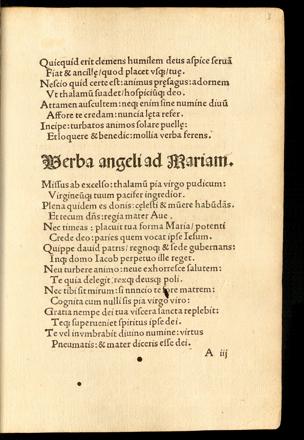 Quicquid erit clemens humilem deus aspice seruā
Fiat & ancillę/quod placet vsq; tuę.
Nescio quid certe est: animus pręsagus: adornem
Vt thalamū suadet/hospiciūq; deo.
Attamen auscultem: neq; enim sine numine diuū
Affore te credam: nuncia lęta refer.
Incipe: turbatos animos solare puellę:
Et loquere & benedic: mollia verba ferens.
Verba angeli ad Mariam.
Missus ab excelso: thalamū pia virgo pudicum:
Virgineūq; tuum pacifer ingredior.
Plena quidem es donis: cęlesti & mūere habūdās.
Et tecum dñs: regia mater Aue.
Nec timeas: placuit tua forma Maria/potenti
Crede deo: paries quem vocat ipse Iesum.
Quippe dauid patris/regnoq; & sede gubernans:
Inq; domo Iacob perpetuo ille reget.
Neu turbere animo: neue exhorresce salutem:
Te quia delegit rex q; deus q; poli.
Nec tibi sit mirum: si nuncio te fore matrem:
Cognita cum nulli sis pia virgo viro:
Gratia nempe dei tua viscera sancta replebit:
Teq; superueniet spiritus ipse dei.
Te vel inumbrabit diuino numine: virtus
Pneumatis: & mater diceris esse dei.
A iij